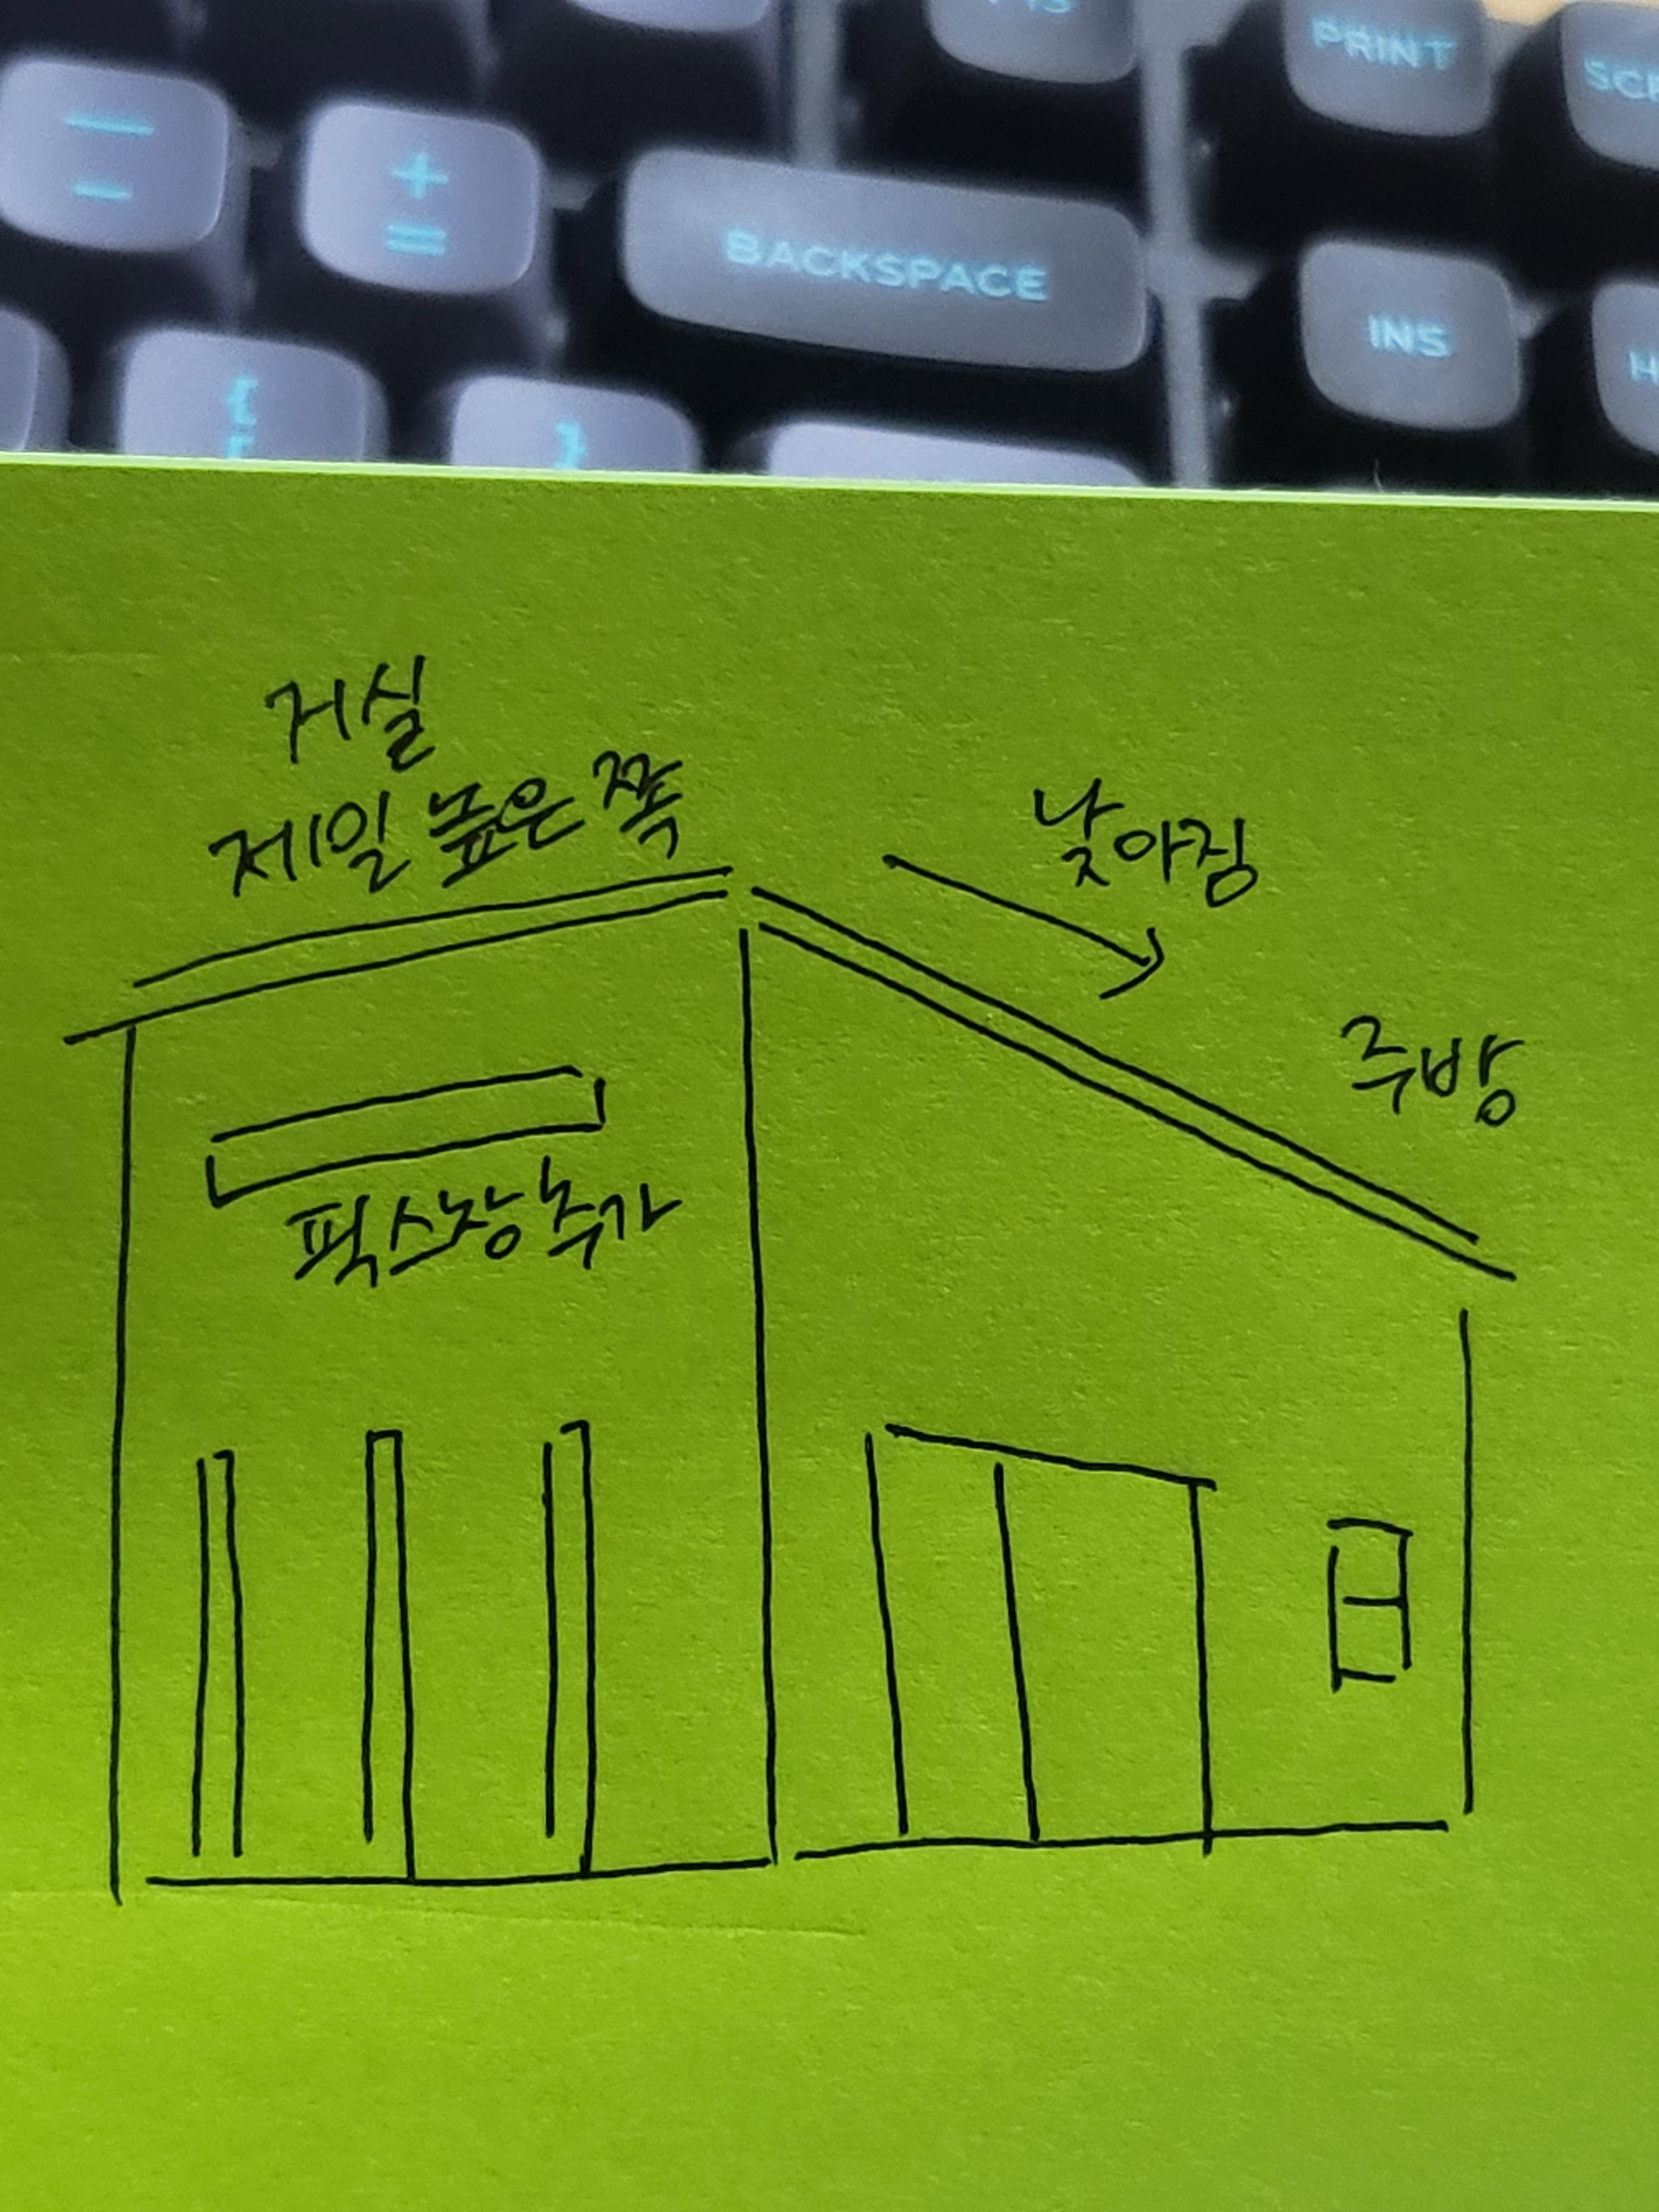 PRINT
BACKSPACE
INS
거실
제일 높은 쪽
낮아짐
주방
픽스창 추가